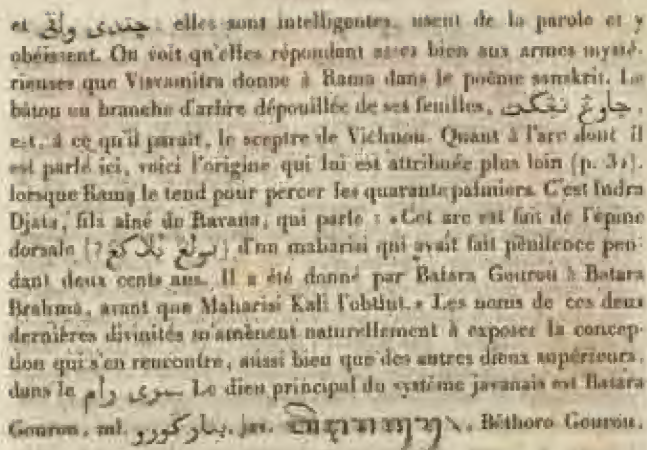 et چندى ولقى; elles sont intelligentes, usent de la parole et y
obéissent. On voit qu'elles répondent assez bien aux armes mysté-
rieuses que Visvamitra donne à Rama dans le poème sanskrit. Le
bâton ou branche d'arbre dépouillée de ses feuilles,
est, à ce qu'il paraît, le sceptre de Vichnou. Quant à l'arc dont il
est parlé ici, voici l'origine qui lui est attribuée plus loin (p. 32).
lorsque Rama le tend pour percer les quarante palmiers. C'est Indra
Djata, fils aîné de Ravana, qui parle : «Cet arc est fait de l'épine
dorsale (? تولڠ بلاكڠ) d'un maharisi qui avait fait pénitence pen-
dant deux cents ans. Il a été donné par Batara Gourou à Batara
Brahma, avant que Maharisi Kali l'obtînt.» Les noms de ces deux
dernières divinités m'amènent naturellement à exposer la concep-
tion qui s'en rencontre, aussi bien que des autres dieux supérieurs,
dans le سرى رام Le dieu principal du système javanais est Batara
Gourou, ml. بتار كورو, jav. Béthoro Gourou,